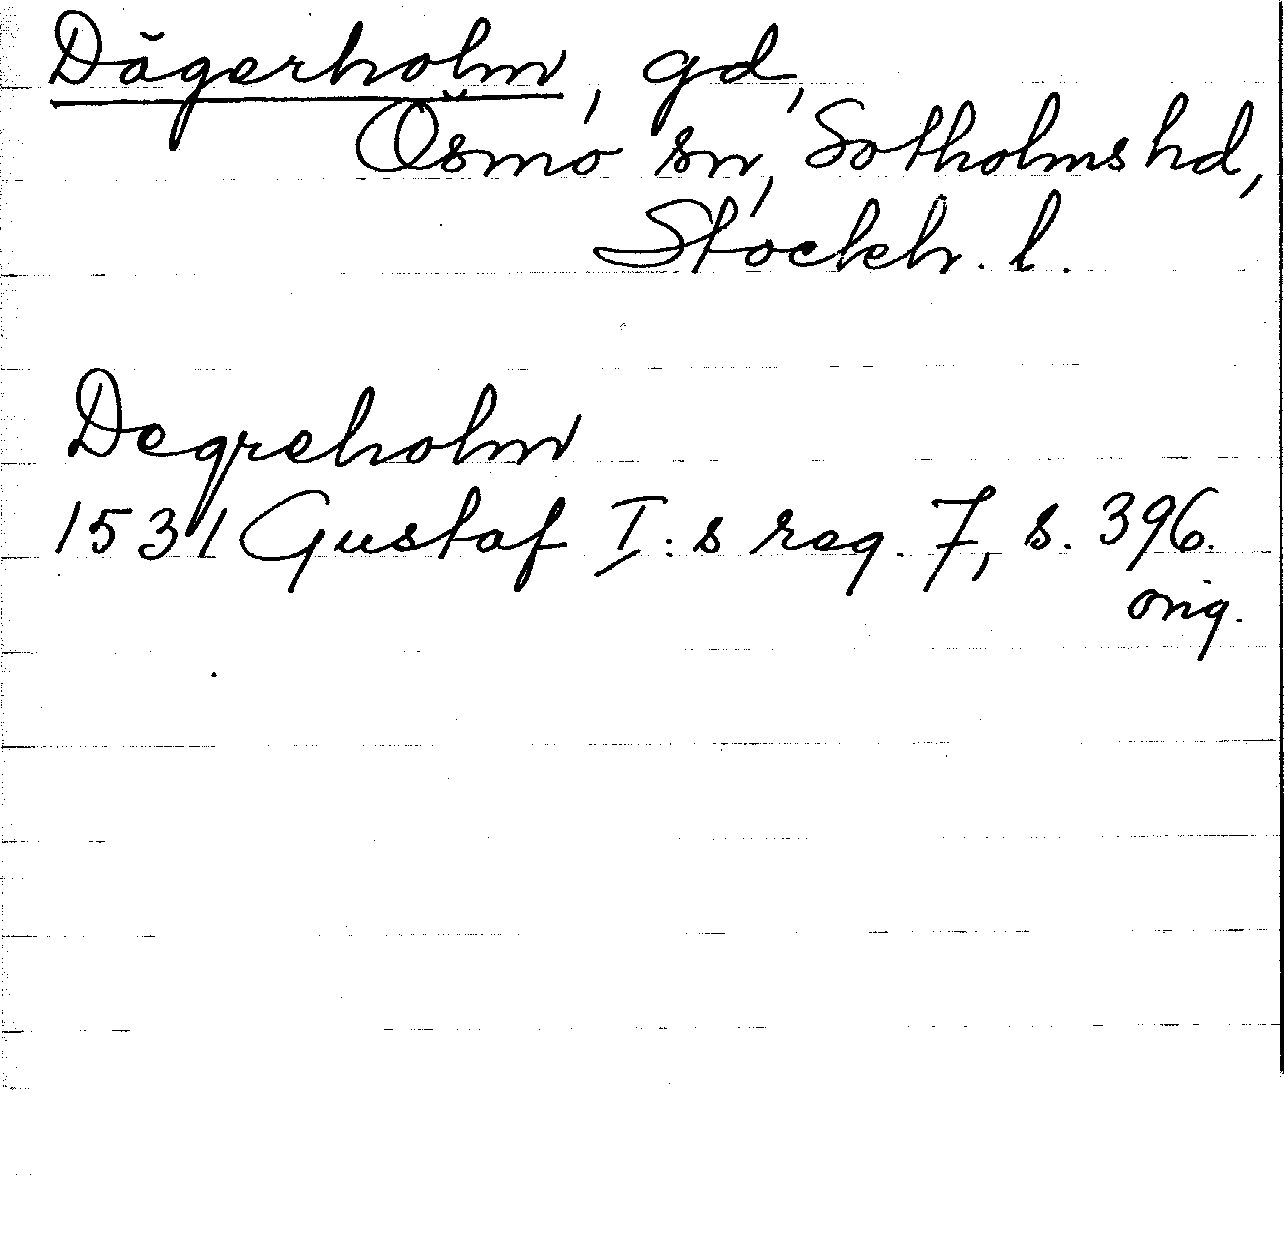 Dägerholm, gd,
Ösmo sn, Sotholms hd,
Stockh. l.
Degreholm
1531 Gustaf I:s reg. 7, s. 396.
orig.